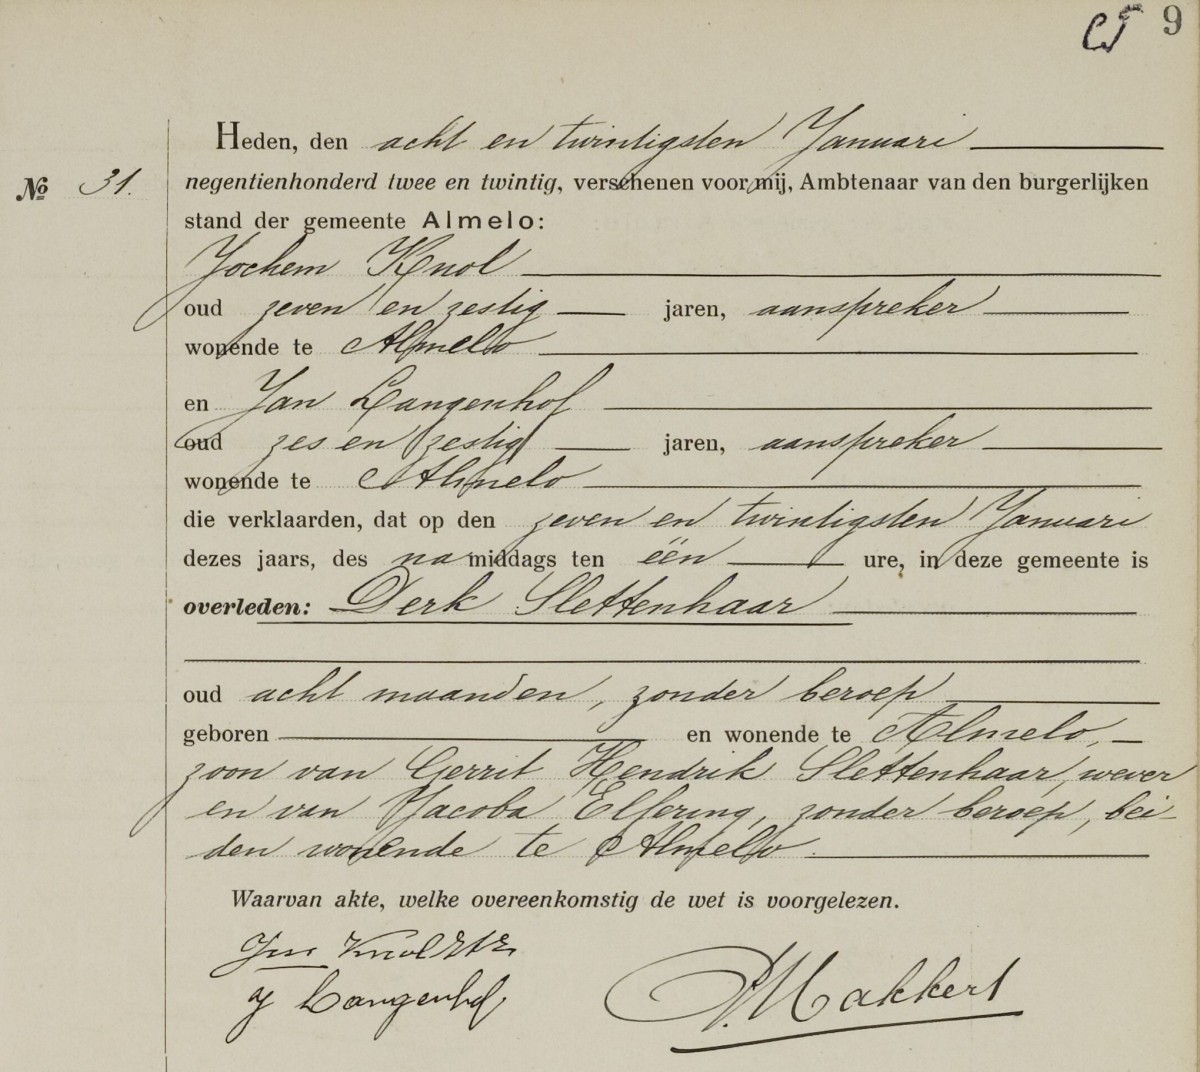 9
Heden, den acht en twintigsten Januari
No 31.
negentienhonderd twee en twintig, verschenen voor mij, Ambtenaar van den burgerlijken
stand der gemeente Almelo:
Jochem Knol
oud zeven en zestig jaren, aanspreker
wonende te Almelo
en Jan Langenhof
oud zes en zestig jaren, aanspreker
wonende te Almelo
die verklaarden, dat op den zeven en twintigsten Januari
dezes jaars, des namiddags ten één ure, in deze gemeente is
overleden: Derk Slettenhaar
oud acht maanden, zonder beroep
geboren en wonende te Almelo,
zoon van Gerrit Hendrik Slettenhaar, wever
en van Jacoba Elfering, zonder beroep, bei-
den wonende te Almelo.
Waarvan akte, welke overeenkomstig de wet is voorgelezen.
Knol
J Langenhof
Makkert